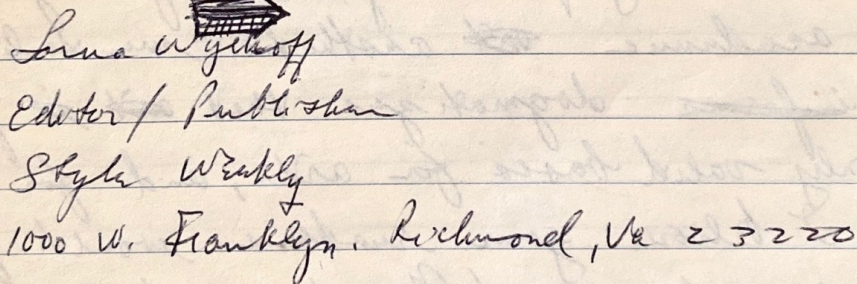 Lorna Wyckoff
Editor / Publisher
Style Weekly
1000 W. Franklyn. Richmond, Va 23220